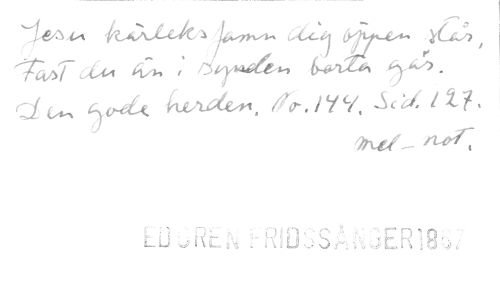 Jesu kärleks famn dig öppen står,
Fast du än i synden borta går.
Den gode herden. No. 144. Sid. 127.
mel-not.
EDGREN FRIDSSÅNGER 1867